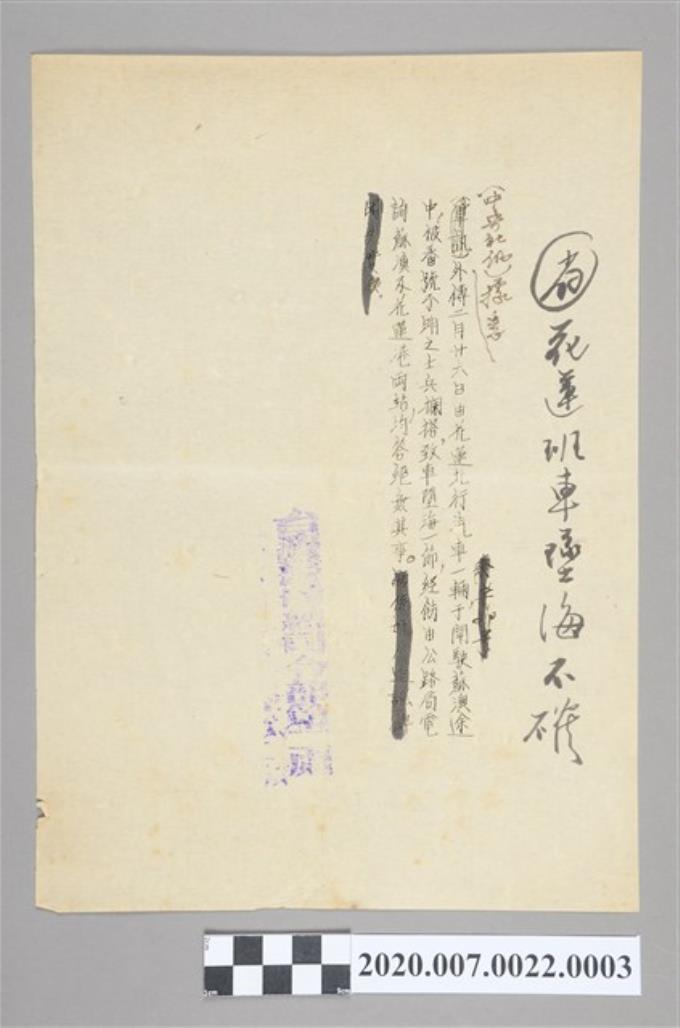 花蓮班車墜海不確
(中央社訊)據悉
(軍訊)外傳二月廿六日由花蓮北行汽車一輛于開駛蘇澳途
中,被番號不明之士兵攔搭,致車墮海一節,經飭由公路局電
詢蘇澳及花蓮港兩站,均答絕無其事。
2020.007.0022.0003